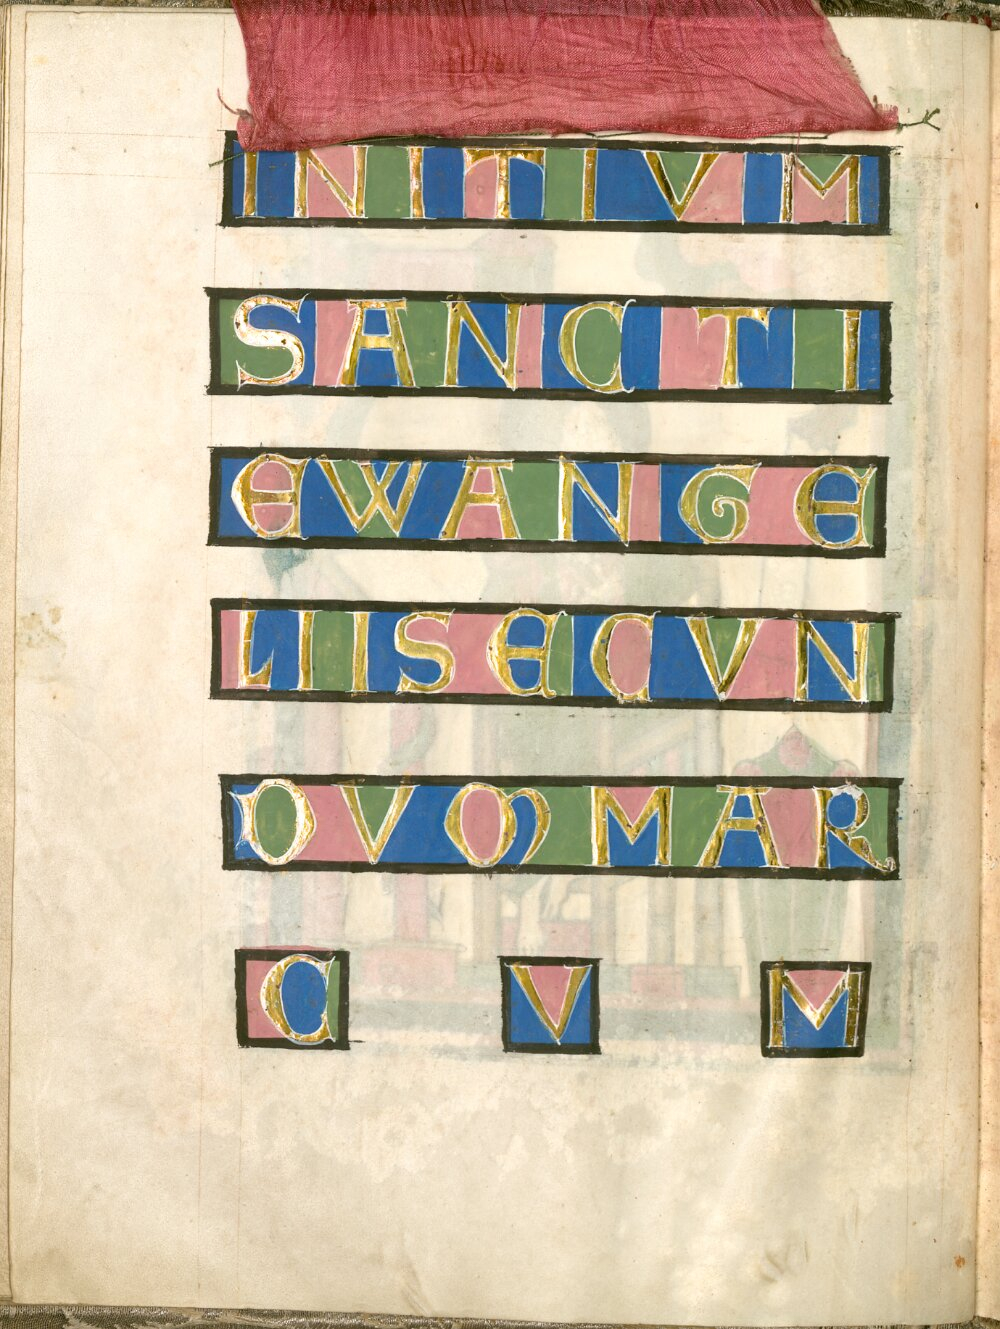 INITIVM
SANCTI
EWANGE
LIISECVN
DVMMAR
CVM